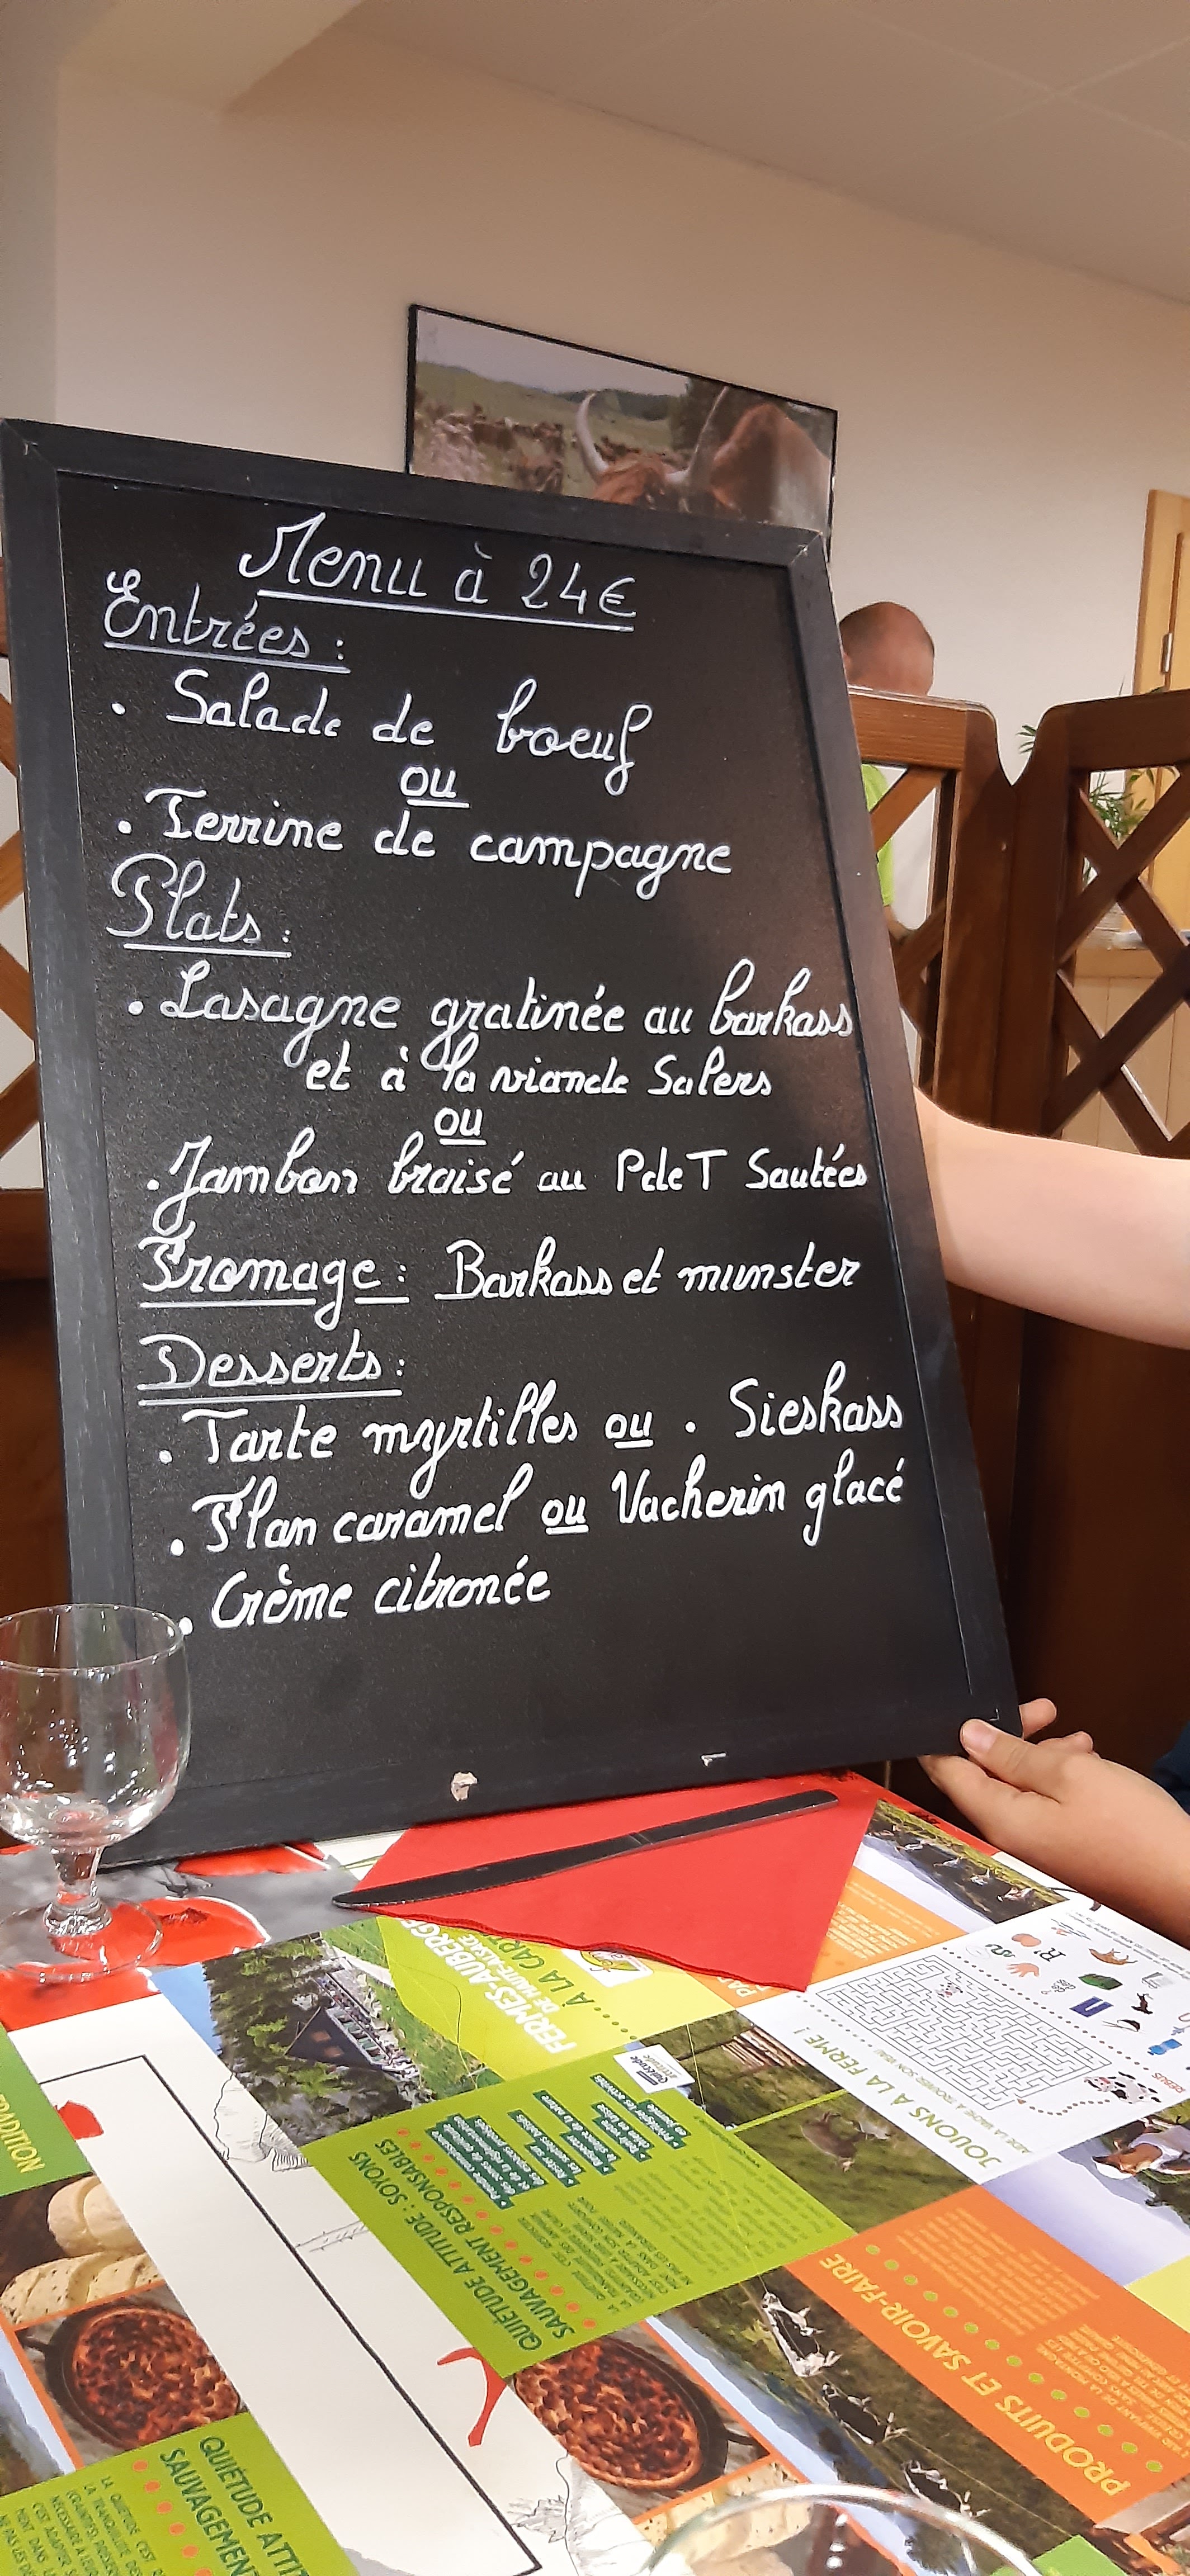 Menu à 24€
Entrées :
. Salade de boeuf
ou
. Terrine de campagne
Plats :
. Lasagne gratinée au barkass
et à la viande Salers
ou
. Jambon braisé au PdeT Sautées
Fromage : Barkass et munster
Desserts :
. Tarte myrtilles ou . Sieskass
. Flan caramel ou Vacherin glacé
. Crème citronée
FERMES-AUBERGE
DE HAUTE-ALSACE
À LA CARTE
JOUONS À LA FERME !
QUIÉTUDE ATTITUDE : SOYONS
SAUVAGEMENT RESPONSABLES
PRODUITS ET SAVOIR-FAIRE
QUIÉTUDE ATTI
SAUVAGEMEN